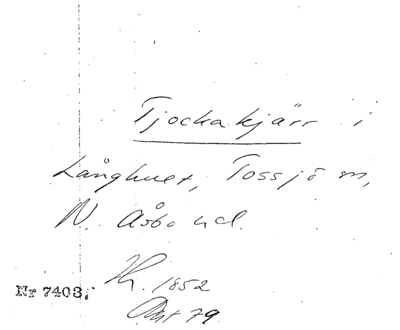 Tjockakjärr i
Långhult, Tossjö sn,
N. Åsbo hd.
1852
Nr 7403.
79